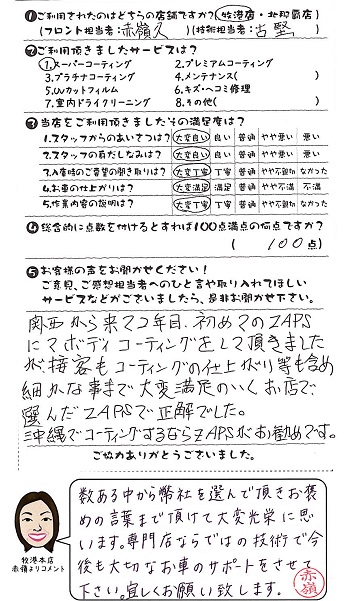 ①ご利用されたのはどちらの店舗ですか？(牧港店・北那覇店)
(フロント担当者：赤嶺久)(技術担当者：古堅)
②ご利用頂きましたサービスは？
1.スーパーコーティング 2.プレミアムコーティング
3.プラチナコーティング 4.メンテナンス( )
5.UVカットフィルム 6.キズ・ヘコミ修理
7.室内ドライクリーニング 8.その他( )
③当店をご利用頂きましたその満足度は？
1.スタッフからのあいさつは？ 大変良い 良い 普通 やや悪い 悪い
2.スタッフの身だしなみは？ 大変良い 良い 普通 やや悪い 悪い
3.入庫時のご要望の聞き取りは？ 大変丁寧 丁寧 普通 やや不親切 なかった
4.お車の仕上がりは？ 大変満足 満足 普通 やや不満 不満
5.作業内容の説明は？ 大変丁寧 丁寧 普通 やや不親切 なかった
④総合的に点数を付けるとすれば100点満点の何点ですか？
( 100点)
⑤お客様の声をお聞かせください！
ご意見、ご感想担当者へのひと言や取り入れてほしい
サービスなどがございましたら、是非お聞かせ下さい。
関西から来て2年目、初めてのZAPS
にてボディコーティングをして頂きました
が、接客もコーティングの仕上がり等も含め
細かな事まで大変満足のいくお店で、
選んだZAPSで正解でした。
沖縄でコーティングするならZAPSがお勧めです。
ご協力ありがとうございました。
数ある中から弊社を選んで頂きお褒
めの言葉まで頂けて大変光栄に思
います。専門店ならではの技術で今
後も大切なお車のサポートをさせて
下さい。宜しくお願い致します。
赤嶺
牧港本店
赤嶺よりコメント